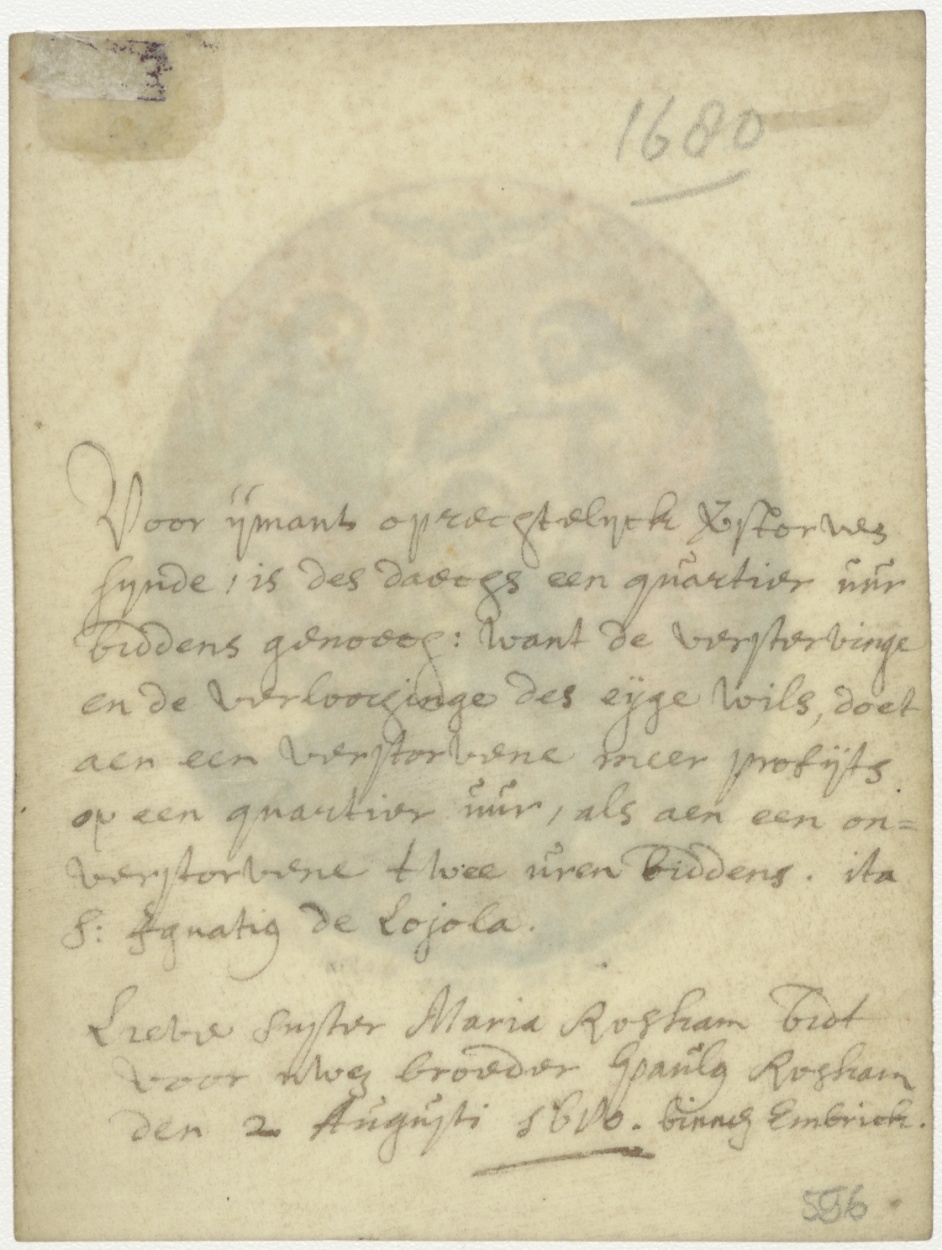 1680
Voor ijmant oprechtelijck v̄storven
sijnde, is des daechs een quartier uur
biddens genoech: want de verstervinge
en de verloochinge des eijge wils, doet
aen een verstorvene meer profijts
op een quartier uur, als aen een on=
verstorvene twee uren biddens. ita
S: Ignatius de Lojola.
Lieve suster Maria Rosham bidt
voor uwen broeder Paulus Rosham
den 2 Augusti 1680. binnen Embrick.
556